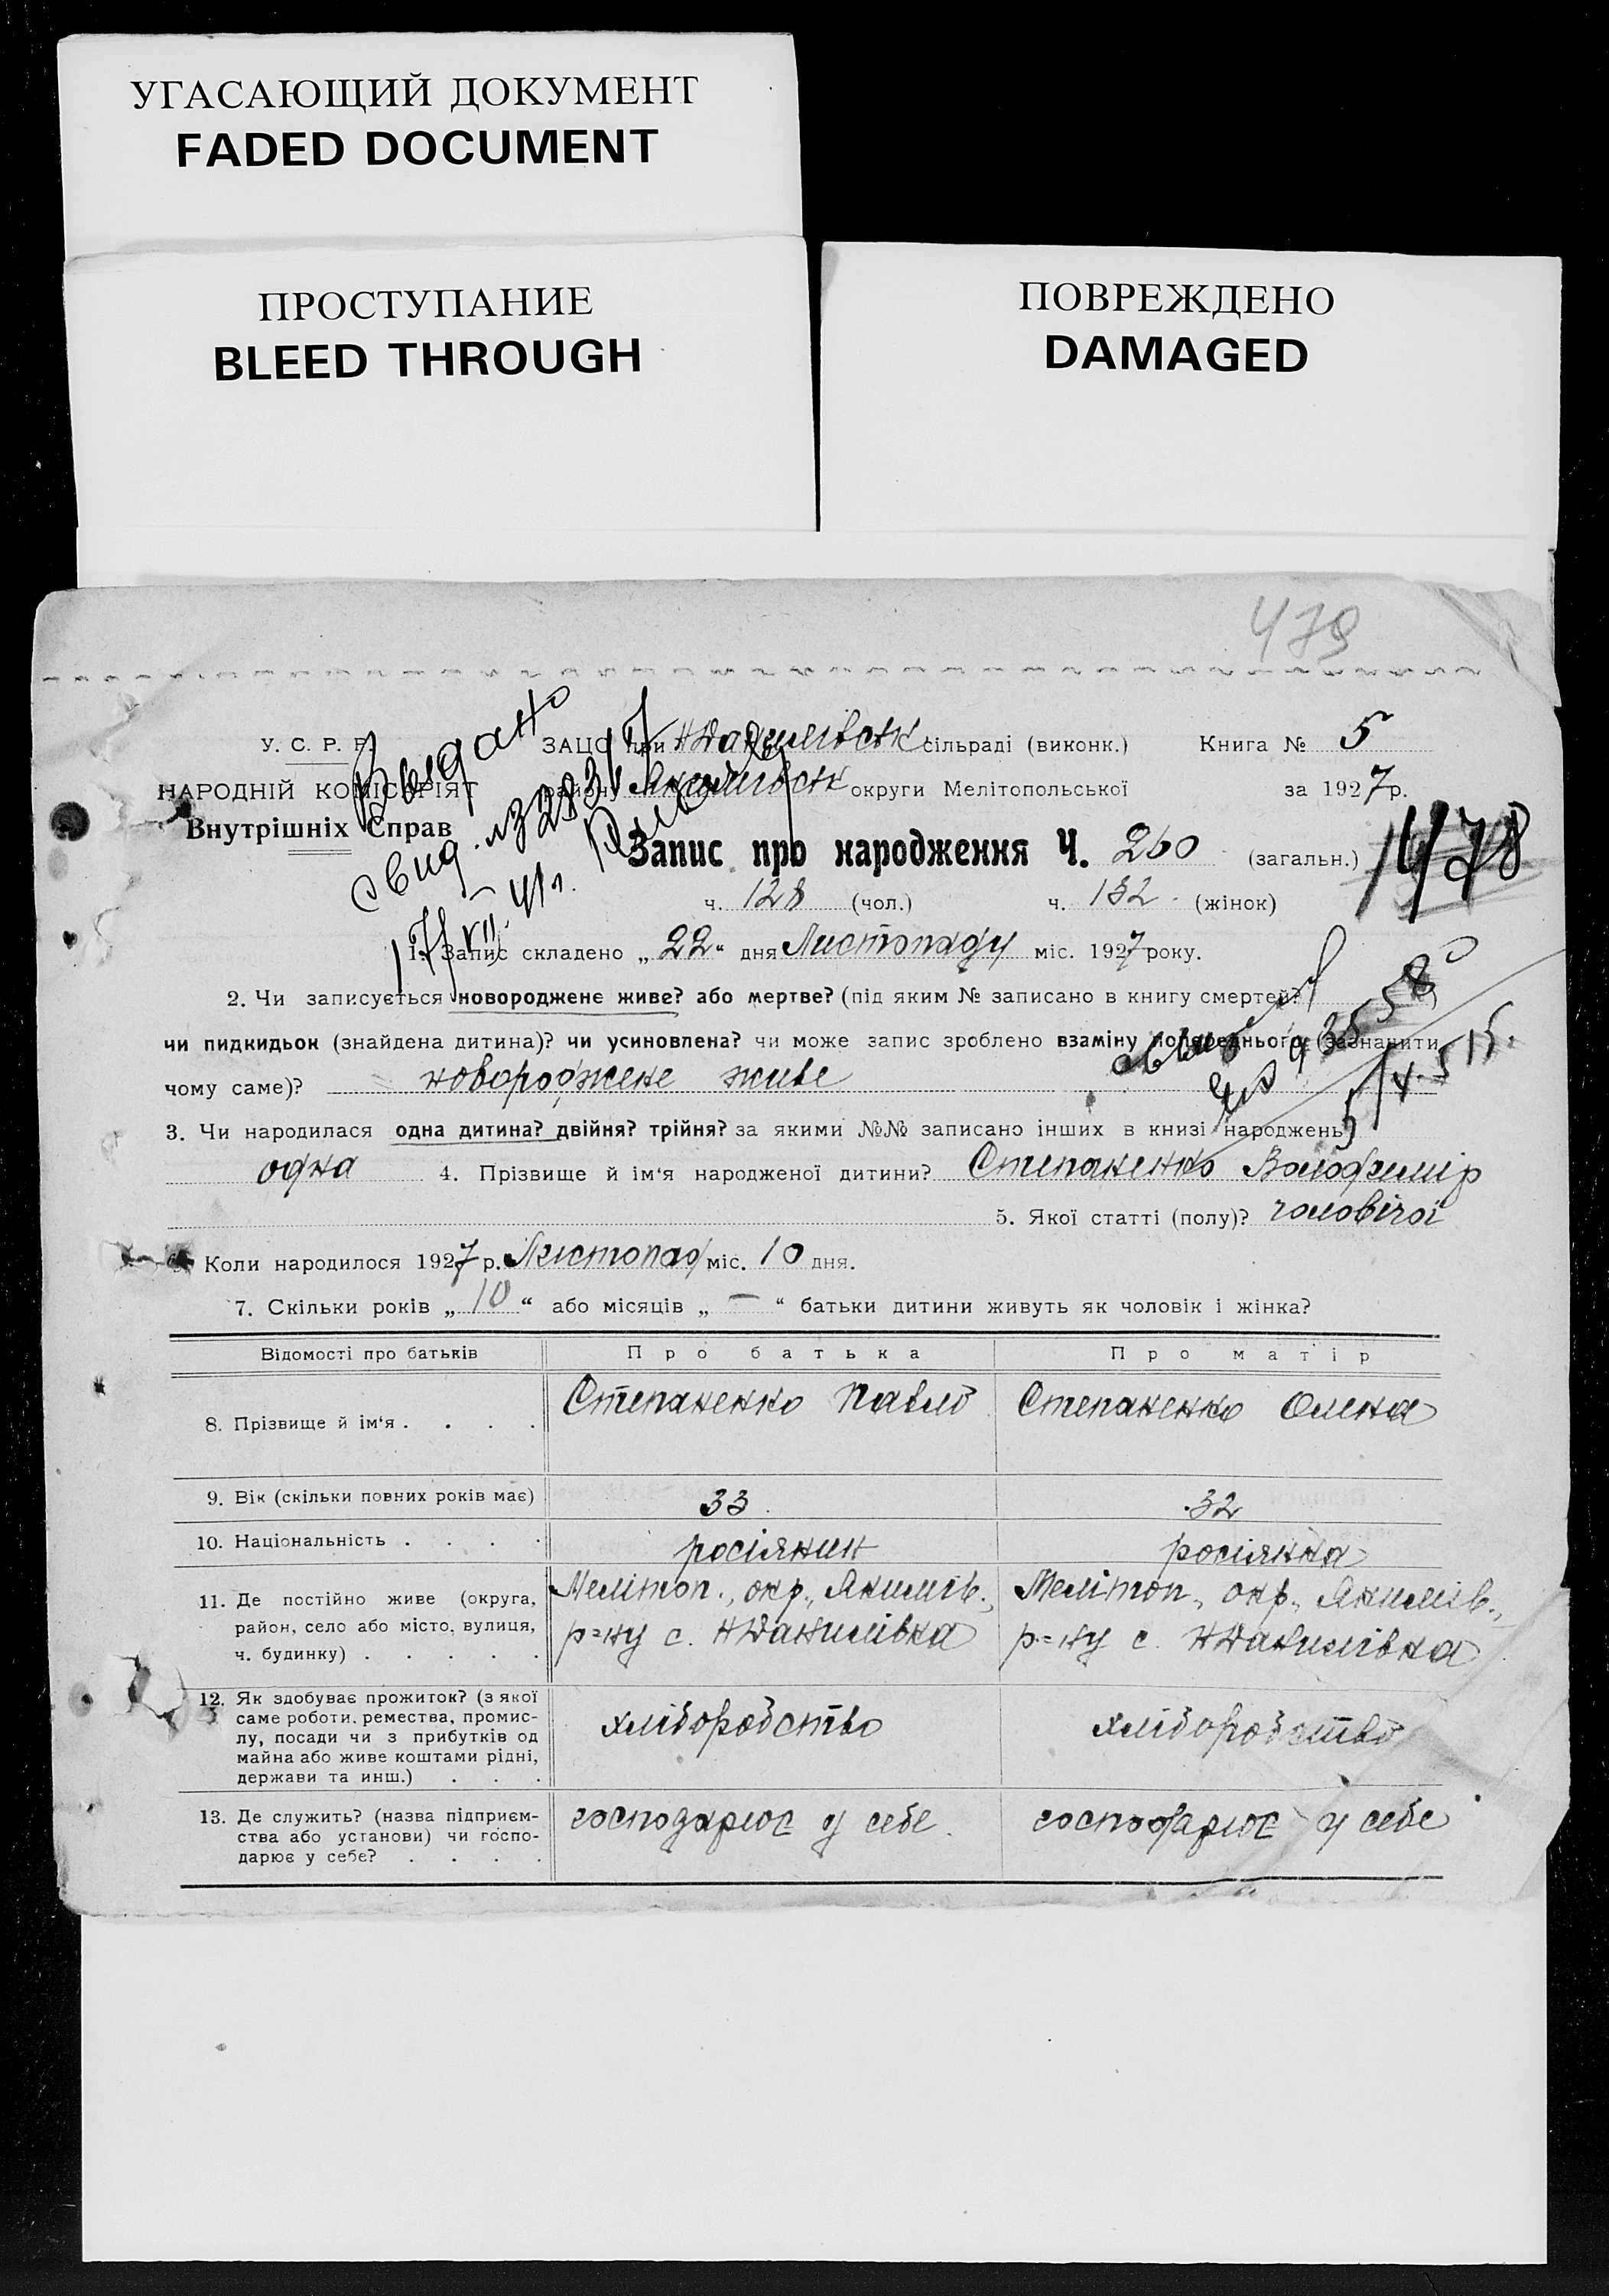 УГАСАЮЩИЙ ДОКУМЕНТ
FADED DOCUMENT
ПРОСТУПАНИЕ
BLEED THROUGH
ПОВРЕЖДЕНО
DAMAGED
479
У. С. Р. Р. ЗАЦС при НДанилівськ сільраді (виконк.) Книга № 5
НАРОДНІЙ КОМІСАРІЯТ району Якимівськ округи Мелітопольської за 1927 р.
Внутрішніх Справ
Выдано
свид.
Запис про народження Ч. 260 (загальн.) 478
ч. 128 (чол.) ч. 132 (жінок)
1. Запис складено „22“ дня Листопаду міс. 1927 року.
2. Чи записується новороджене живе? або мертве? (під яким № записано в книгу смертей?)
чи пидкидьок (знайдена дитина)? чи усиновлена? чи може запис зроблено взаміну попереднього (зазначити
чому саме)? новороджене живе
3. Чи народилася одна дитина? двійня? трійня? за якими №№ записано інших в книзі народжень?
одна 4. Прізвище й ім‘я народженої дитини? Степаненко Володимір
5. Якої статті (полу)? чоловічої
Коли народилося 1927 р. Листопад міс. 10 дня.
7. Скільки років „10“ або місяців „—“ батьки дитини живуть як чоловік і жінка?
Відомості про батьків Про батька Про матір
8. Прізвище й ім‘я . . . . Степаненко Павло Степаненко Олена
9. Вік (скільки повних років має) 33 32
10. Національність . . . . росіянин росіянка
11. Де постійно живе (округа, Мелітоп., окр., Якимів., Мелітоп., окр., Якимів.,
район, село або місто, вулиця, р=ну с. НДанилівка р.=ну с. НДанилівка
ч. будинку) . . . . .
12. Як здобуває прожиток? (з якої
саме роботи, ремества, промис- хліборобство хліборобство
лу, посади чи з прибутків од
майна або живе коштами рідні,
держави та инш.) . . .
13. Де служить? (назва підприєм- господарює у себе господарює у себе
ства або установи) чи госпо-
дарює у себе? . . . .